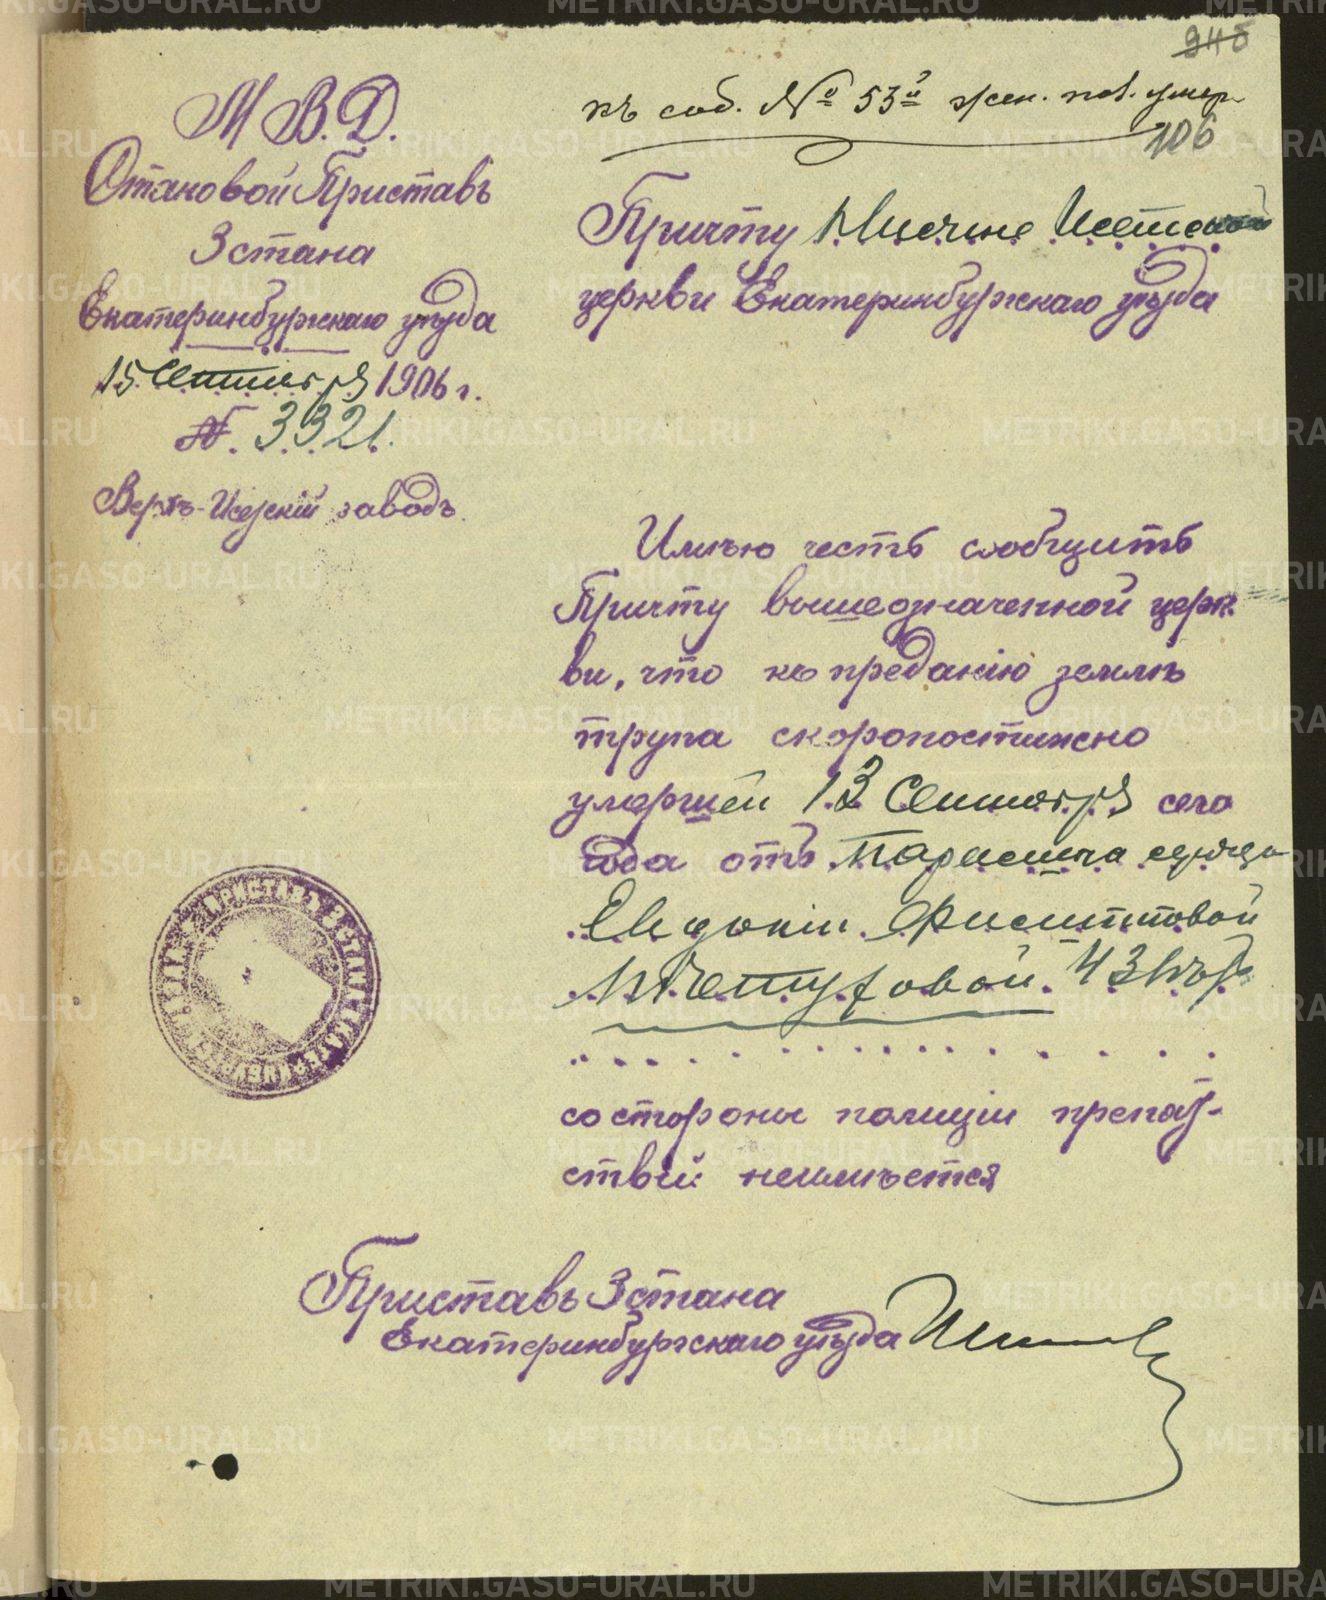 къ соб. № 53й жен. пол. умер.
106
М В. Д.
Становой Приставъ
3 стана
Екатеринбургскаго уѣзда
15 Сентября 1906 г.
№. 3321.
Верхъ-Исетскій заводъ.
Причту Нижне Исетской
церкви Екатеринбургскаго уѣзда
Имѣю честь сообщить
Причту вышеозначенной церк
ви, что къ преданію землѣ
трупа скоропостижно
умершей 13 Сентября сего
года отъ паралича сердца
Евдокіи
43 лѣтъ
со стороны полиціи препят-
ствій неимѣется
Приставъ 3 стана
Екатеринбургскаго уѣзда
ПРИСТАВЪ 3 СТАНА ЕКАТЕРИНБУРГСК
METRIKI.GASO-URAL.RU